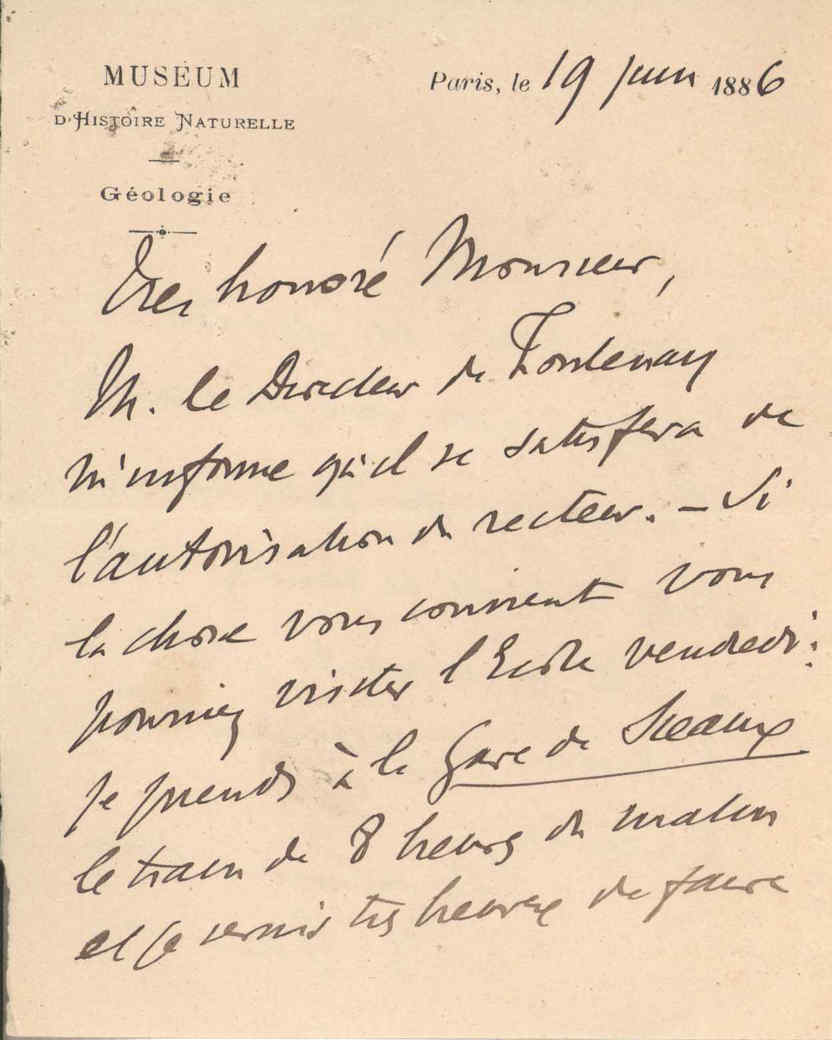 MUSÉUM
D'HISTOIRE NATURELLE
Géologie
Paris, le 19 juin 1886
Très honoré Monsieur,
M. le Directeur de Fontenay
m'informe qu'il se satisfera de
l'autorisation du recteur. – Si
la chose vous convient vous
pourriez visiter l'Ecole vendredi:
je prends à la Gare de Sceaux
le train de 8 heures du matin
et je serais très heureux de faire